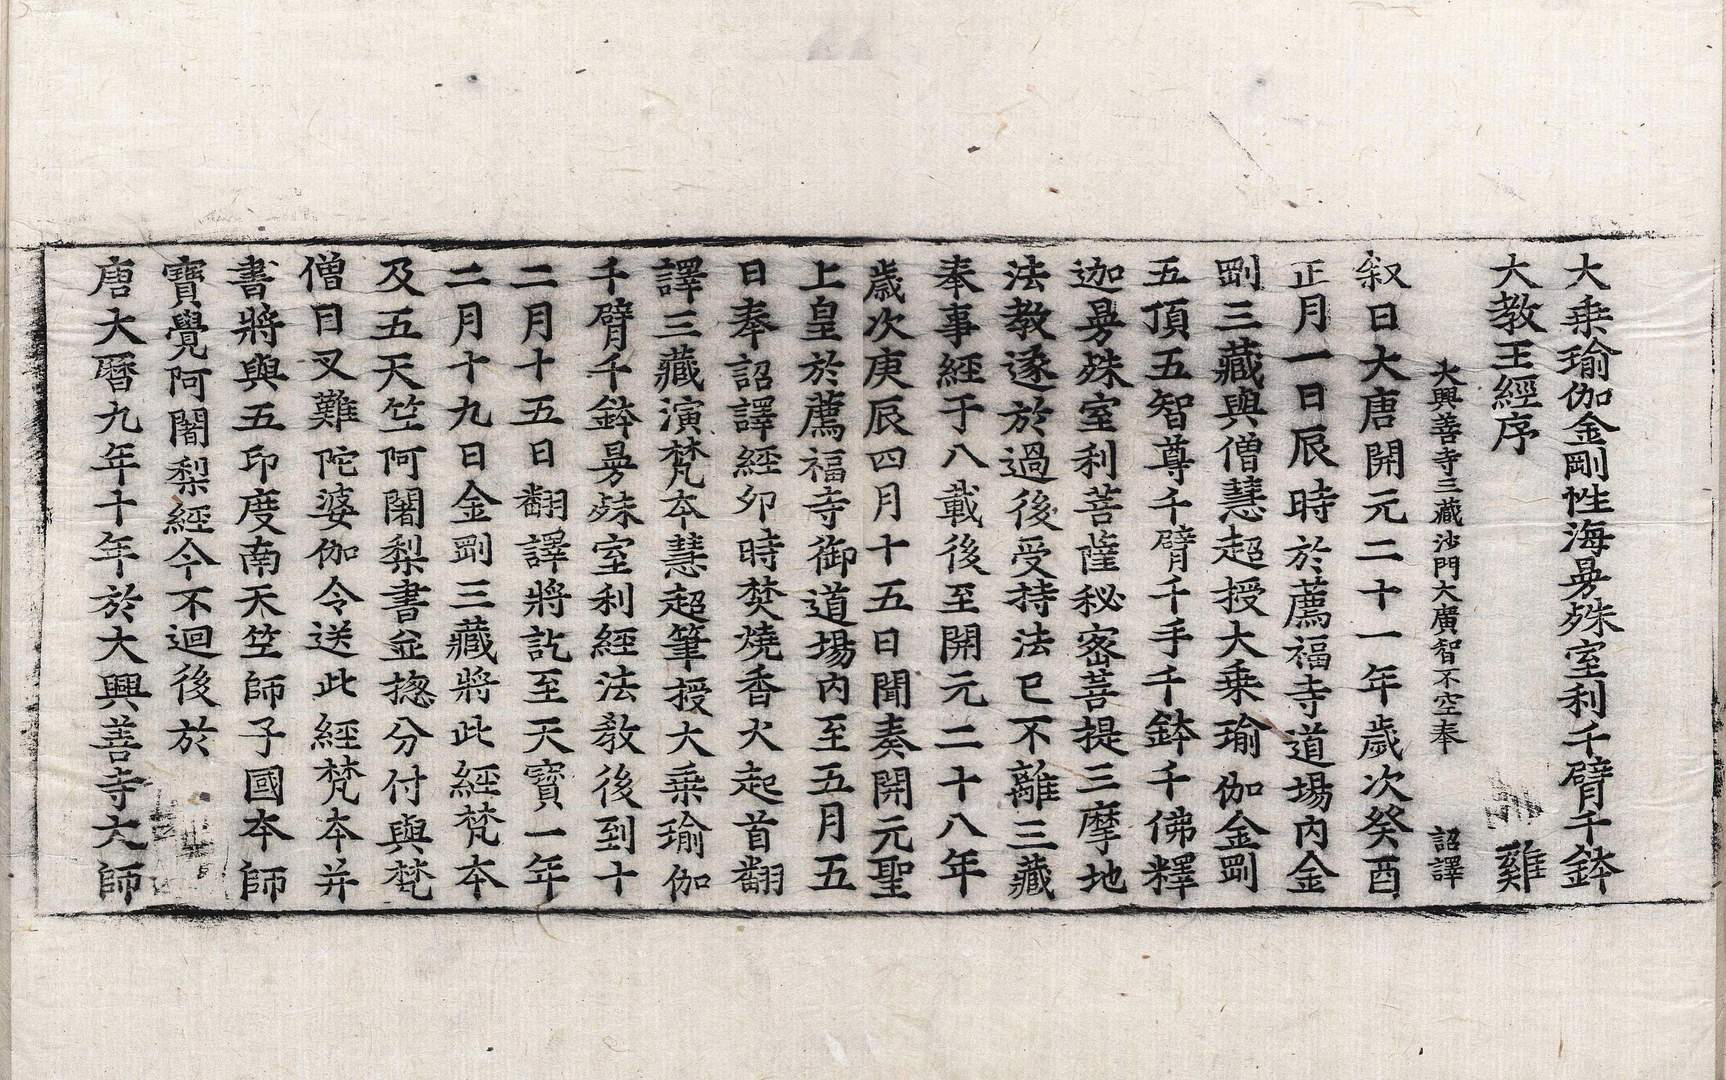 大乗瑜伽金剛性海曼殊室利千臂千鉢
大教王經序 雞
大興善寺三藏沙門大廣智不空奉 詔譯
叙曰大唐開元二十一年歲次癸酉
正月一日辰時於薦福寺道場内金
剛三藏與僧慧超授大乗瑜伽金剛
五頂五智尊千臂千手千鉢千佛釋
迦曼殊室利菩薩秘密菩提三摩地
法教遂於過後受持法已不離三藏
奉事經于八載後至開元二十八年
歲次庚辰四月十五日聞奏開元聖
上皇於薦福寺御道場内至五月五
日奉詔譯經卯時焚燒香火起首翻
譯三藏演梵本慧超筆授大乗瑜伽
千臂千鉢曼殊室利經法教後到十
二月十五日翻譯將訖至天寶一年
二月十九日金剛三藏將此經梵本
及五天竺阿闍梨書並揔分付與梵
僧目叉難陀婆伽令送此經梵本并
書將與五印度南天竺師子國本師
寶覺阿闍梨經今不迴後於
唐大曆九年十年於大興善寺大師